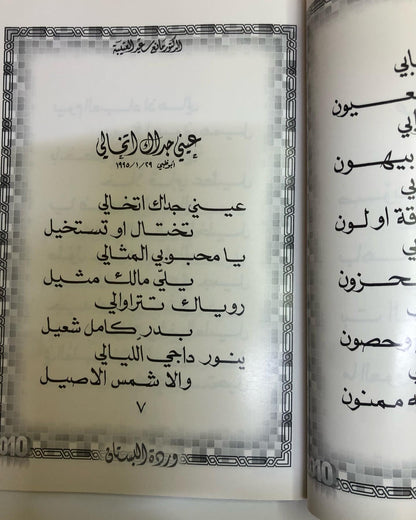 الدكتور مانع سعيد العتيبة
عيني جداك اتخالي
ابوظبي ٢٩/١/١٩٩٥
عيني جداك اتخالي
تختال او تستخيل
يا محبوبي المثالي
يللي مالك مثيل
روياك تتراوالي
بدرٍ كامل شعيل
ينور داجي الليالي
والا شمس الاصيل
٧
وردة البستان
ـالي
ـعيـون
ـابي
بيهـون
ـبي
ـقة او لـون
ـي
ـحـزون
وحصون
ـه ممنون